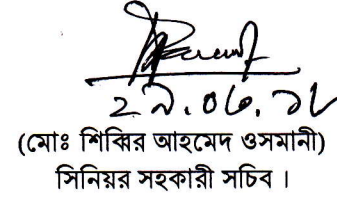 ২৯.০৬.১৮
(মোঃ শিব্বির আহমেদ ওসমানী)
সিনিয়র সহকারী সচিব ।